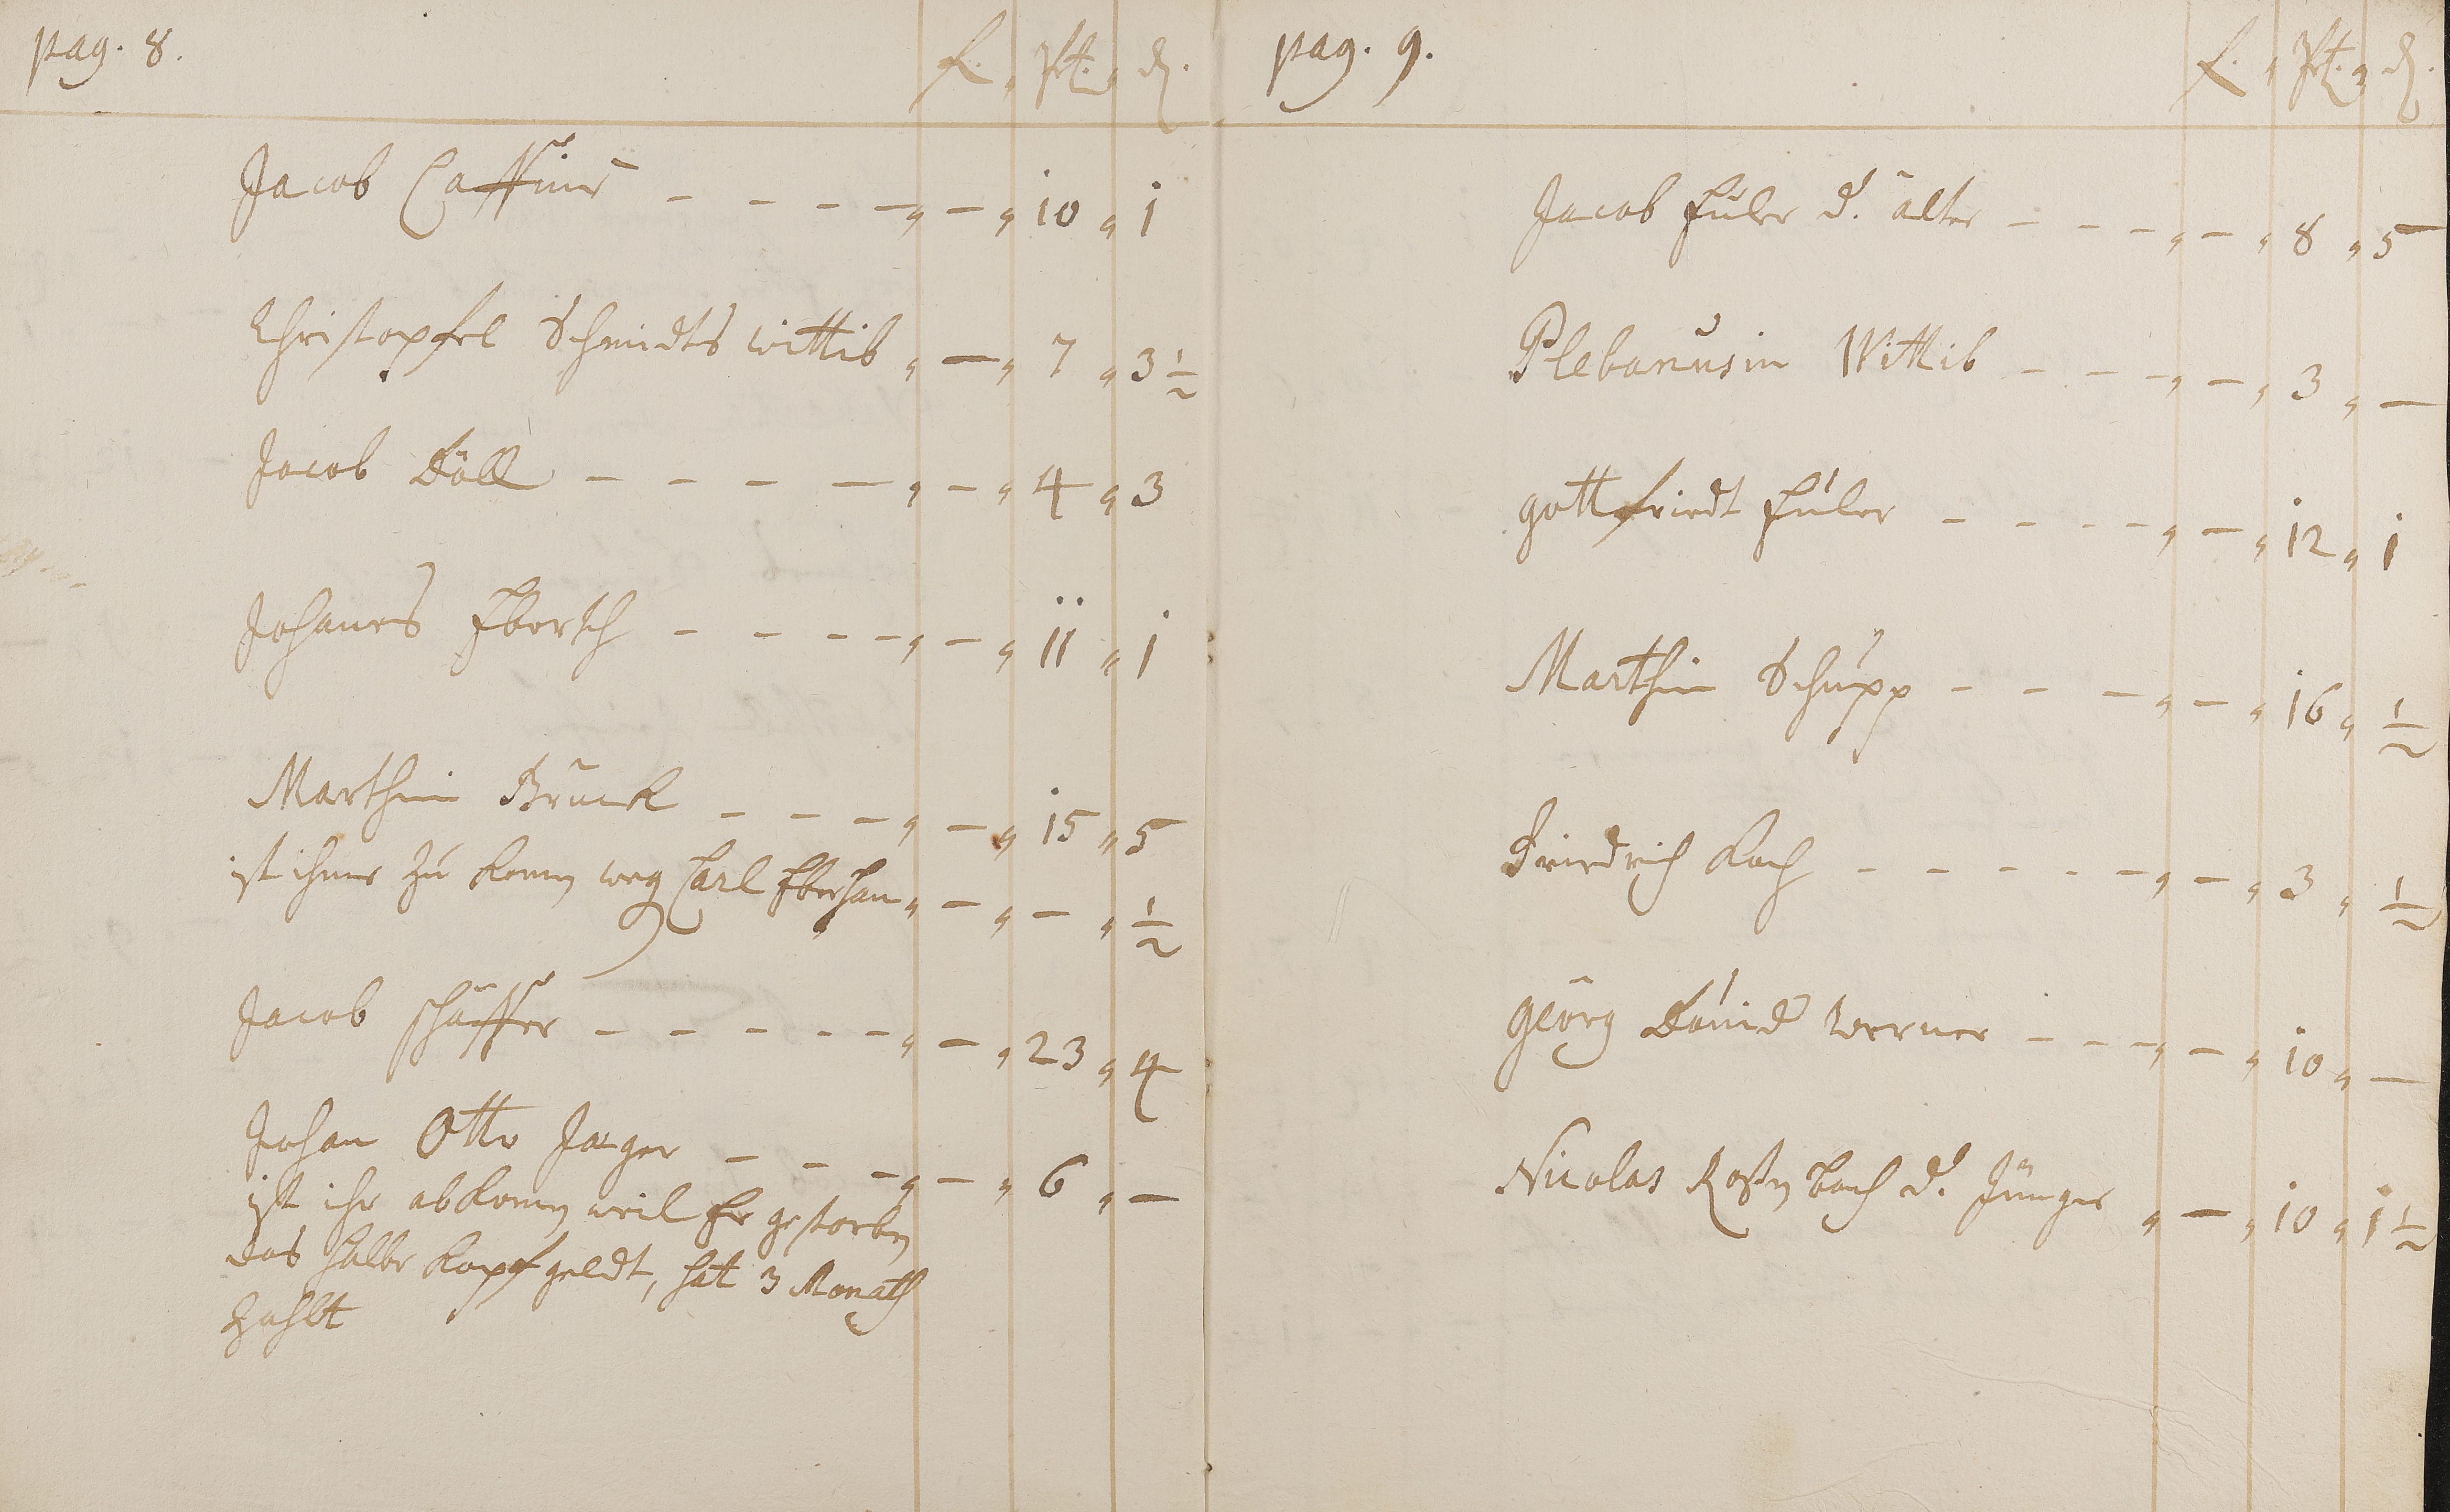 pag. 8.
f. " Xt. " d.
Jacob Cassius - - - - " - " 10 " 1
Christopfel Schmidts wittib " - " 7 " 3 1/2
Jacob Döll - - - - " - " 4 " 3
Johannes Ebertsch - - - - " - " 11 " 1
Marthin Brück - - - " - " 15 " 5
ist ihme zu komen weg Carl Eberhan " - " - " 1/2
Jacob schäffer - - - - - " - " 23 " 4
Johan Otto Jæger - - - " - " 6 " -
ist ihr abkomen weil Er gestorben
das halbe kopfgeldt, hat 3 Monath
zahlt
pag. 9.
f. " Xt. " d.
Jacob Euler d. älter - - - " - " 8 " 5
Plebanusin Wittib - - - " - " 3 " -
gottfriedt Euler - - - - " - " 12 " 1
Marthin Schupp - - - " - " 16 " 1/2
Friedrich Koch - - - - - " - " 3 " 1/2
Georg Dauid werner - - - " - " 10 " -
Nicolas Roßenbach d. Jünger " - " 10 " 1 1/2